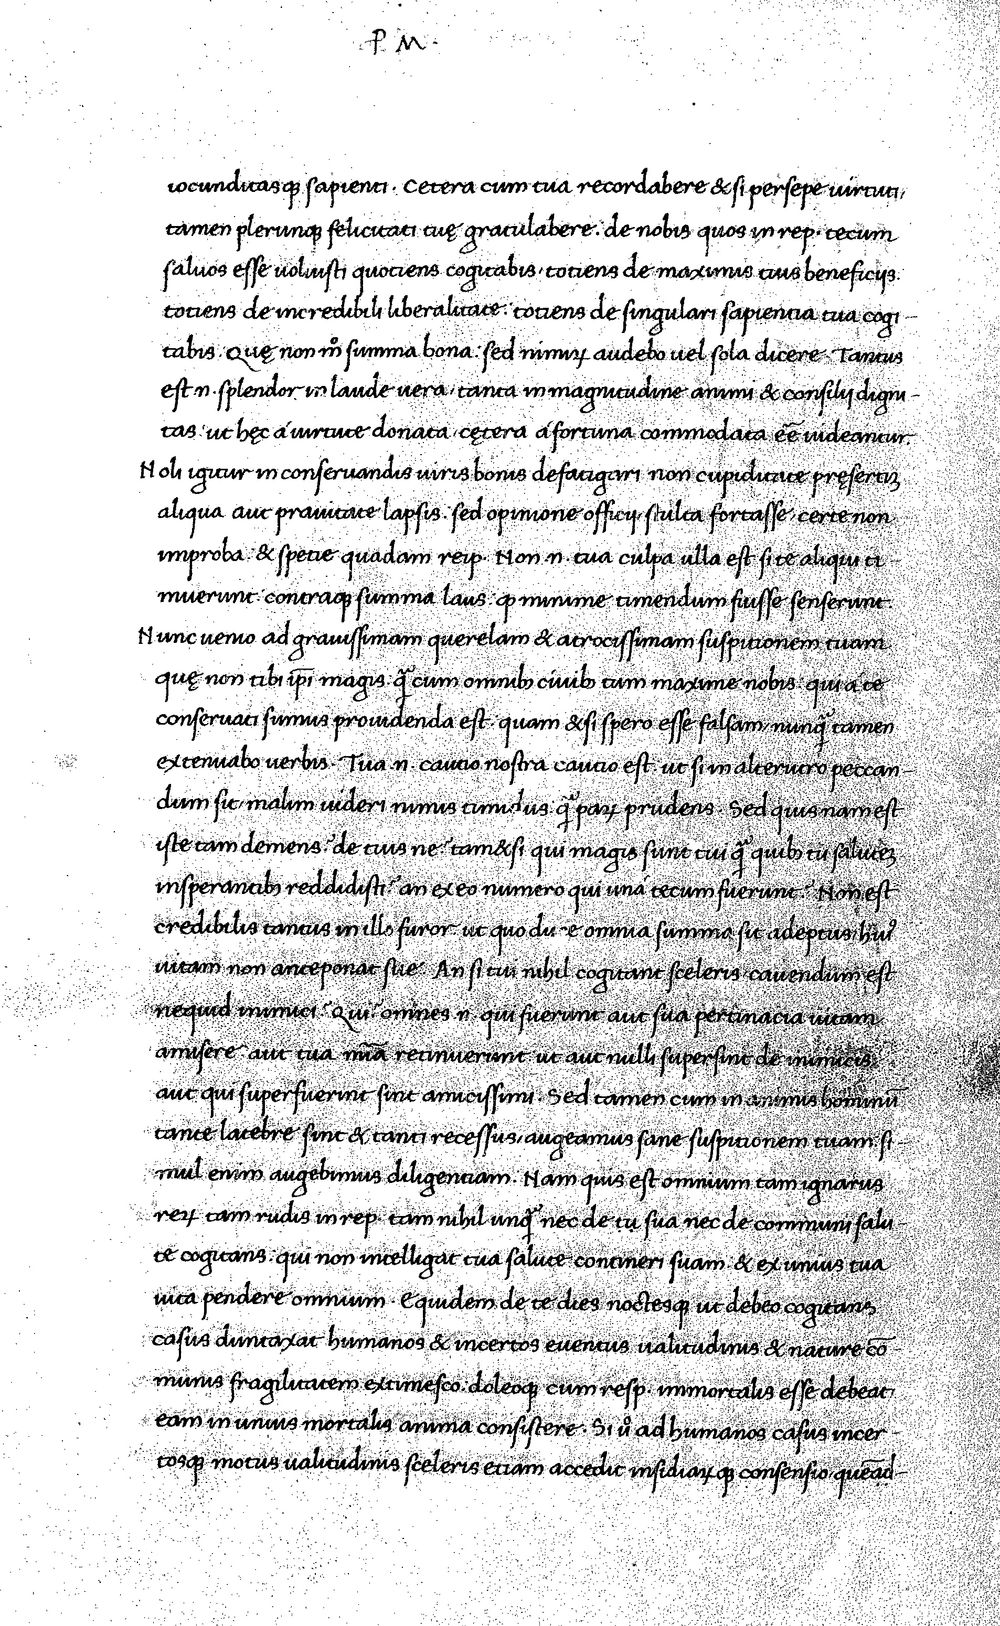 P M.
iocunditasqꝫ sapienti. Cetera cum tua recordabere & si persepe uirtuti,
tamen plerunqꝫ felicitati tuę gratulabere. de nobis quos in rep. tecum
saluos esse uoluisti quotiens cogitabis, totiens de maximis tuis beneficijs.
totiens de incredibili liberalitate: totiens de singulari sapientia tua cogi-
tabis. Quę non mͦ summa bona: sed nimiꝝ audebo uel sola dicere. Tantus
est .n. splendor in laude uera, tanta in magnitudine animi & consilij digni-
tas: ut hęc á uirtute donata, cętera á fortuna commodata eē uideantur.
Noli igitur in conseruandis uiris bonis defatigari non cupiditate pręsertiꝫ
aliqua aut prauitate lapsis: sed opinione officij stulta fortasse, certe non
improba: & spetie quadam reip. Non .n. tua culpa ulla est si te aliqui ti-
muerunt: contraqꝫ summa laus: ꝙ minime timendum fuisse senserunt.
Nunc uenio ad grauissimam querelam & atrocissimam suspitionem tuam
quę non tibi ip̄i magis q̃ cum omnibꝫ ciuibꝫ tum maxime nobis. qui a te
conseruati sumus prouidenda est. quam & si spero esse falsam, nunq̃ tamen
extenuabo uerbis. Tua .n. cautio nostra cautio est. ut si in alterutro peccan-
dum sit, malim uideri nimis timidus q̃ paꝝ prudens. Sed quis nam est
iste tam demens? de tuis ne? tam & si qui magis sunt tui q̃ quibꝫ tu saluteꝫ
insperantibꝫ reddidisti? an ex eo numero qui uná tecum fuerunt? Non est
credibilis tantus in illo furor: ut quo duce omnia summa sit adeptus, huiꝰ
uitam non anteponat suę. An si tui nihil cogitant sceleris, cauendum est
nequid inimici? Qui? omnes .n. qui fuerunt aut sua pertinacia uitam
amisere aut tua mīa retinuerunt ut aut nulli supersint de inimicis.
aut qui superfuerint sint amicissimi. Sed tamen cum in animis hominū
tante latebre sint & tanti recessus, augeamus sane suspitionem tuam. si-
mul enim augebimus diligentiam. Nam quis est omnium tam ignarus
reꝝ tam rudis in rep. tam nihil unq̃ nec de tu sua nec de communi salu-
te cogitans: qui non intelligat tua salute contineri suam. & ex unius tua
uita pendere omnium. Equidem de te dies noctesqꝫ ut debeo cogitans
casus duntaxat humanos & incertos euentus ualitudinis & nature cō-
munis fragilitatem extimesco. doleoqꝫ cum resp. immortalis esse debeat
eam in unius mortalis anima consistere. Si uͦ ad humanos casus incer-
tosqꝫ motus ualitudinis sceleris etiam accedit insidiaꝝqꝫ consensio, queād-